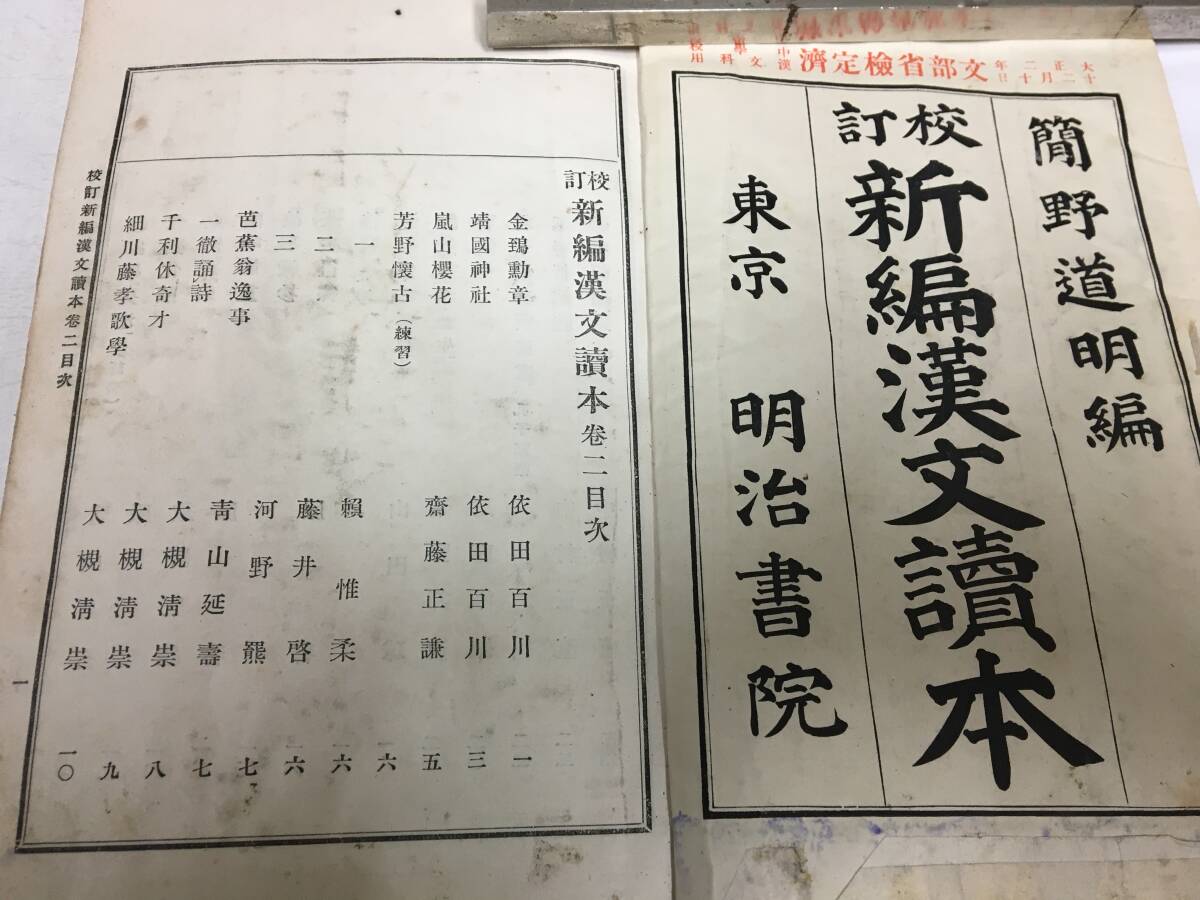 大正二年
十二月十日
文部省檢定濟
簡野道明編
校訂新編漢文讀本
東京 明治書院
校訂新編漢文讀本卷二目次
金鵄勳章 依田百川 一
靖國神社 依田百川 三
嵐山櫻花 齋藤正謙 五
芳野懷古(練習) 六
一 賴惟柔 六
二 藤井啓 六
三 河野羆 七
芭蕉翁逸事 青山延壽 七
一徹誦レ詩 大槻淸崇 八
千利休奇才 大槻淸崇 九
細川藤孝歌學 大槻淸崇 一〇
校訂新編漢文讀本卷二目次
一